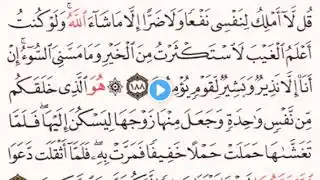 قُل لَّآ أَمْلِكُ لِنَفْسِى نَفْعًا وَلَا ضَرًّا إِلَّا مَا شَآءَ ٱللَّهُ ۚ وَلَوْ كُنتُ
أَعْلَمُ ٱلْغَيْبَ لَٱسْتَكْثَرْتُ مِنَ ٱلْخَيْرِ وَمَا مَسَّنِىَ ٱلسُّوٓءُ ۚ إِنْ
أَنَا۠ إِلَّا نَذِيرٌ وَبَشِيرٌ لِّقَوْمٍ يُؤْمِنُونَ ١٨٨ ۞ هُوَ ٱلَّذِى خَلَقَكُم
مِّن نَّفْسٍ وَٰحِدَةٍ وَجَعَلَ مِنْهَا زَوْجَهَا لِيَسْكُنَ إِلَيْهَا ۖ فَلَمَّا
تَغَشَّىٰهَا حَمَلَتْ حَمْلًا خَفِيفًا فَمَرَّتْ بِهِۦ ۖ فَلَمَّآ أَثْقَلَت دَّعَوَا